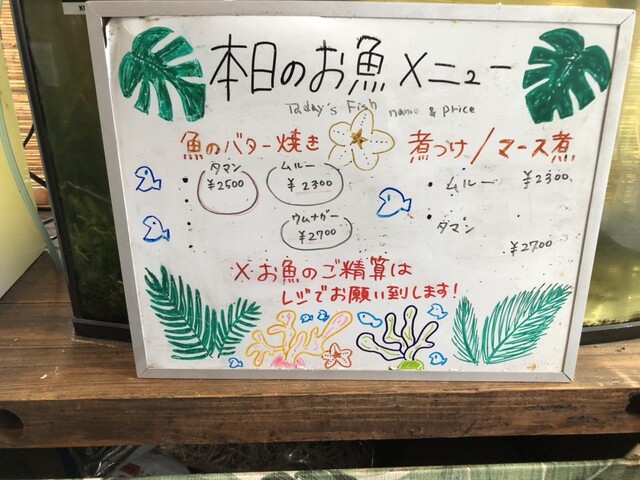 本日のお魚メニュー
Today's Fish name & price
魚のバター焼き
煮つけ/マース煮
タマン
¥2500
ムルー
¥2300
ウムナガー
¥2700
・ムルー ¥2300
・タマン
¥2700
×お魚のご精算は
レジでお願い到します!